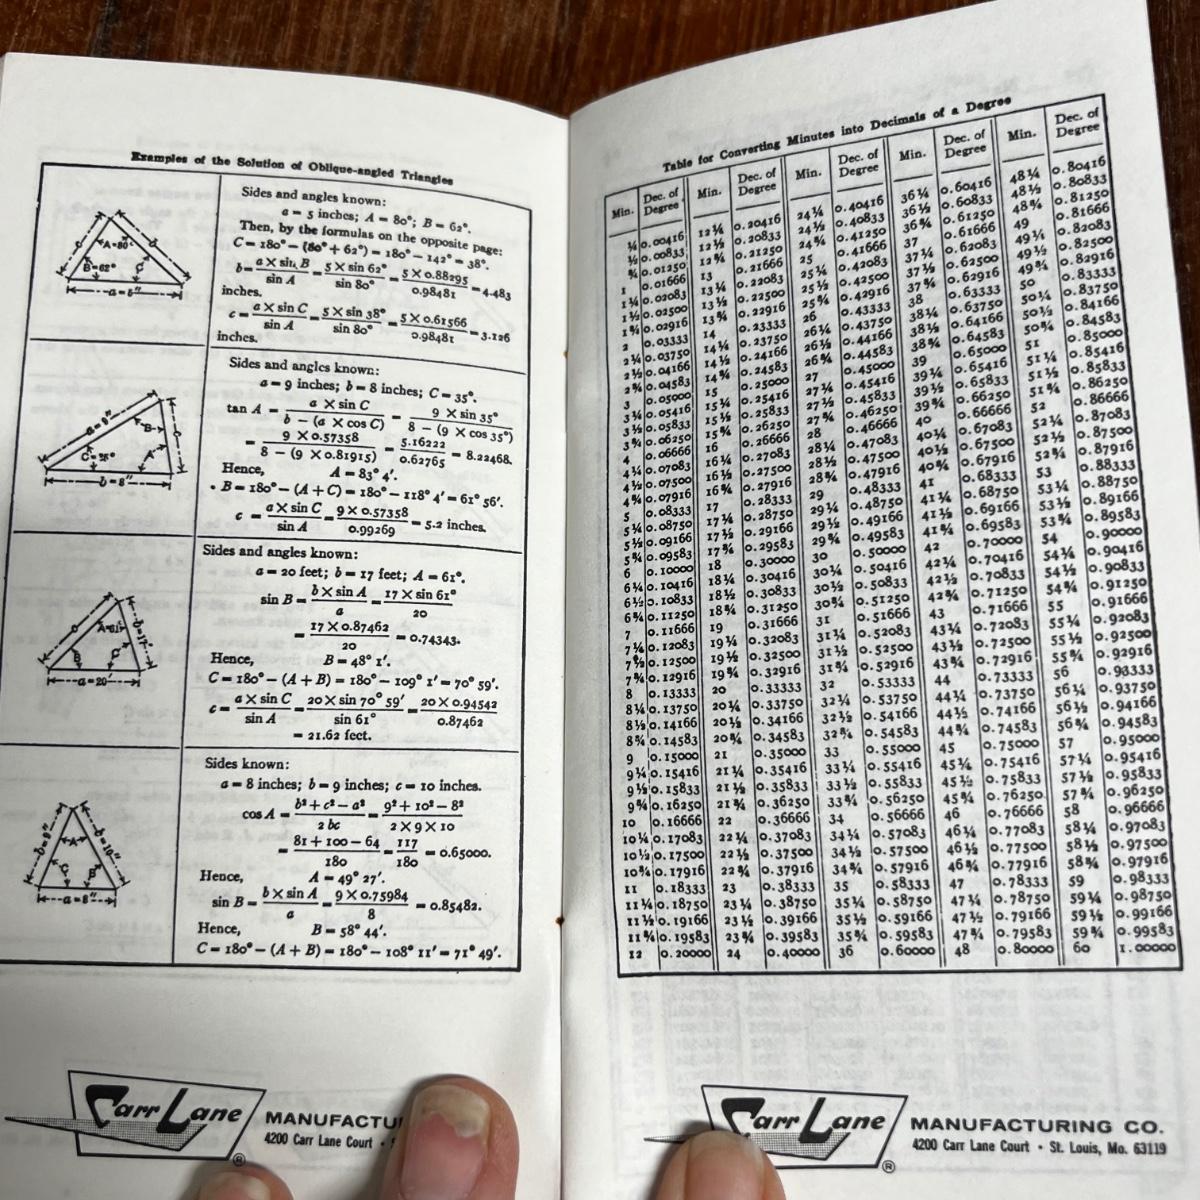 Examples of the Solution of Oblique-angled Triangles
Sides and angles known:
a = 5 inches; A = 80°; B = 62°.
Then, by the formulas on the opposite page:
C = 180° − (80° + 62°) = 180° − 142° = 38°.
b = a × sin B / sin A = 5 × sin 62° / sin 80° = 5 × 0.88295 / 0.98481 = 4.483
inches.
c = a × sin C / sin A = 5 × sin 38° / sin 80° = 5 × 0.61566 / 0.98481 = 3.126
inches.
A=80°
B=62°
C
c
b
a = 5"
Sides and angles known:
a = 9 inches; b = 8 inches; C = 35°.
tan A = a × sin C / b − (a × cos C) = 9 × sin 35° / 8 − (9 × cos 35°)
= 9 × 0.57358 / 8 − (9 × 0.81915) = 5.16222 / 0.62765 = 8.22468.
Hence, A = 83° 4'.
B = 180° − (A + C) = 180° − 118° 4' = 61° 56'.
c = a × sin C / sin A = 9 × 0.57358 / 0.99269 = 5.2 inches.
a = 9"
B
C = 35°
A
c
b = 8"
Sides and angles known:
a = 20 feet; b = 17 feet; A = 61°.
sin B = b × sin A / a = 17 × sin 61° / 20
= 17 × 0.87462 / 20 = 0.74343.
Hence, B = 48° 1'.
C = 180° − (A + B) = 180° − 109° 1' = 70° 59'.
c = a × sin C / sin A = 20 × sin 70° 59' / sin 61° = 20 × 0.94542 / 0.87462
= 21.62 feet.
c
A=61°
b = 17'
B
C
a = 20'
Sides known:
a = 8 inches; b = 9 inches; c = 10 inches.
cos A = b² + c² − a² / 2 bc = 9² + 10² − 8² / 2 × 9 × 10
= 81 + 100 − 64 / 180 = 117 / 180 = 0.65000.
Hence, A = 49° 27'.
sin B = b × sin A / a = 9 × 0.75984 / 8 = 0.85482.
Hence, B = 58° 44'.
C = 180° − (A + B) = 180° − 108° 11' = 71° 49'.
b = 9"
A
c = 10"
C
B
a = 8"
Carr Lane MANUFACTU
4200 Carr Lane Court •
®
Table for Converting Minutes into Decimals of a Degree
Min. Dec. of Degree Min. Dec. of Degree Min. Dec. of Degree Min. Dec. of Degree Min. Dec. of Degree
¼ 0.00416 12¼ 0.20416 24¼ 0.40416 36¼ 0.60416 48¼ 0.80416
½ 0.00833 12½ 0.20833 24½ 0.40833 36½ 0.60833 48½ 0.80833
¾ 0.01250 12¾ 0.21250 24¾ 0.41250 36¾ 0.61250 48¾ 0.81250
1 0.01666 13 0.21666 25 0.41666 37 0.61666 49 0.81666
1¼ 0.02083 13¼ 0.22083 25¼ 0.42083 37¼ 0.62083 49¼ 0.82083
1½ 0.02500 13½ 0.22500 25½ 0.42500 37½ 0.62500 49½ 0.82500
1¾ 0.02916 13¾ 0.22916 25¾ 0.42916 37¾ 0.62916 49¾ 0.82916
2 0.03333 14 0.23333 26 0.43333 38 0.63333 50 0.83333
2¼ 0.03750 14¼ 0.23750 26¼ 0.43750 38¼ 0.63750 50¼ 0.83750
2½ 0.04166 14½ 0.24166 26½ 0.44166 38½ 0.64166 50½ 0.84166
2¾ 0.04583 14¾ 0.24583 26¾ 0.44583 38¾ 0.64583 50¾ 0.84583
3 0.05000 15 0.25000 27 0.45000 39 0.65000 51 0.85000
3¼ 0.05416 15¼ 0.25416 27¼ 0.45416 39¼ 0.65416 51¼ 0.85416
3½ 0.05833 15½ 0.25833 27½ 0.45833 39½ 0.65833 51½ 0.85833
3¾ 0.06250 15¾ 0.26250 27¾ 0.46250 39¾ 0.66250 51¾ 0.86250
4 0.06666 16 0.26666 28 0.46666 40 0.66666 52 0.86666
4¼ 0.07083 16¼ 0.27083 28¼ 0.47083 40¼ 0.67083 52¼ 0.87083
4½ 0.07500 16½ 0.27500 28½ 0.47500 40½ 0.67500 52½ 0.87500
4¾ 0.07916 16¾ 0.27916 28¾ 0.47916 40¾ 0.67916 52¾ 0.87916
5 0.08333 17 0.28333 29 0.48333 41 0.68333 53 0.88333
5¼ 0.08750 17¼ 0.28750 29¼ 0.48750 41¼ 0.68750 53¼ 0.88750
5½ 0.09166 17½ 0.29166 29½ 0.49166 41½ 0.69166 53½ 0.89166
5¾ 0.09583 17¾ 0.29583 29¾ 0.49583 41¾ 0.69583 53¾ 0.89583
6 0.10000 18 0.30000 30 0.50000 42 0.70000 54 0.90000
6¼ 0.10416 18¼ 0.30416 30¼ 0.50416 42¼ 0.70416 54¼ 0.90416
6½ 0.10833 18½ 0.30833 30½ 0.50833 42½ 0.70833 54½ 0.90833
6¾ 0.11250 18¾ 0.31250 30¾ 0.51250 42¾ 0.71250 54¾ 0.91250
7 0.11666 19 0.31666 31 0.51666 43 0.71666 55 0.91666
7¼ 0.12083 19¼ 0.32083 31¼ 0.52083 43¼ 0.72083 55¼ 0.92083
7½ 0.12500 19½ 0.32500 31½ 0.52500 43½ 0.72500 55½ 0.92500
7¾ 0.12916 19¾ 0.32916 31¾ 0.52916 43¾ 0.72916 55¾ 0.92916
8 0.13333 20 0.33333 32 0.53333 44 0.73333 56 0.93333
8¼ 0.13750 20¼ 0.33750 32¼ 0.53750 44¼ 0.73750 56¼ 0.93750
8½ 0.14166 20½ 0.34166 32½ 0.54166 44½ 0.74166 56½ 0.94166
8¾ 0.14583 20¾ 0.34583 32¾ 0.54583 44¾ 0.74583 56¾ 0.94583
9 0.15000 21 0.35000 33 0.55000 45 0.75000 57 0.95000
9¼ 0.15416 21¼ 0.35416 33¼ 0.55416 45¼ 0.75416 57¼ 0.95416
9½ 0.15833 21½ 0.35833 33½ 0.55833 45½ 0.75833 57½ 0.95833
9¾ 0.16250 21¾ 0.36250 33¾ 0.56250 45¾ 0.76250 57¾ 0.96250
10 0.16666 22 0.36666 34 0.56666 46 0.76666 58 0.96666
10¼ 0.17083 22¼ 0.37083 34¼ 0.57083 46¼ 0.77083 58¼ 0.97083
10½ 0.17500 22½ 0.37500 34½ 0.57500 46½ 0.77500 58½ 0.97500
10¾ 0.17916 22¾ 0.37916 34¾ 0.57916 46¾ 0.77916 58¾ 0.97916
11 0.18333 23 0.38333 35 0.58333 47 0.78333 59 0.98333
11¼ 0.18750 23¼ 0.38750 35¼ 0.58750 47¼ 0.78750 59¼ 0.98750
11½ 0.19166 23½ 0.39166 35½ 0.59166 47½ 0.79166 59½ 0.99166
11¾ 0.19583 23¾ 0.39583 35¾ 0.59583 47¾ 0.79583 59¾ 0.99583
12 0.20000 24 0.40000 36 0.60000 48 0.80000 60 1.00000
Carr Lane MANUFACTURING CO.
4200 Carr Lane Court • St. Louis, Mo. 63119
®